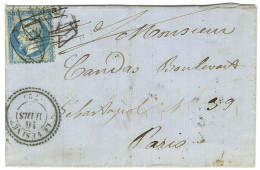 Monsieur
Candas Boulevart
Sebastopol N° 39
Paris